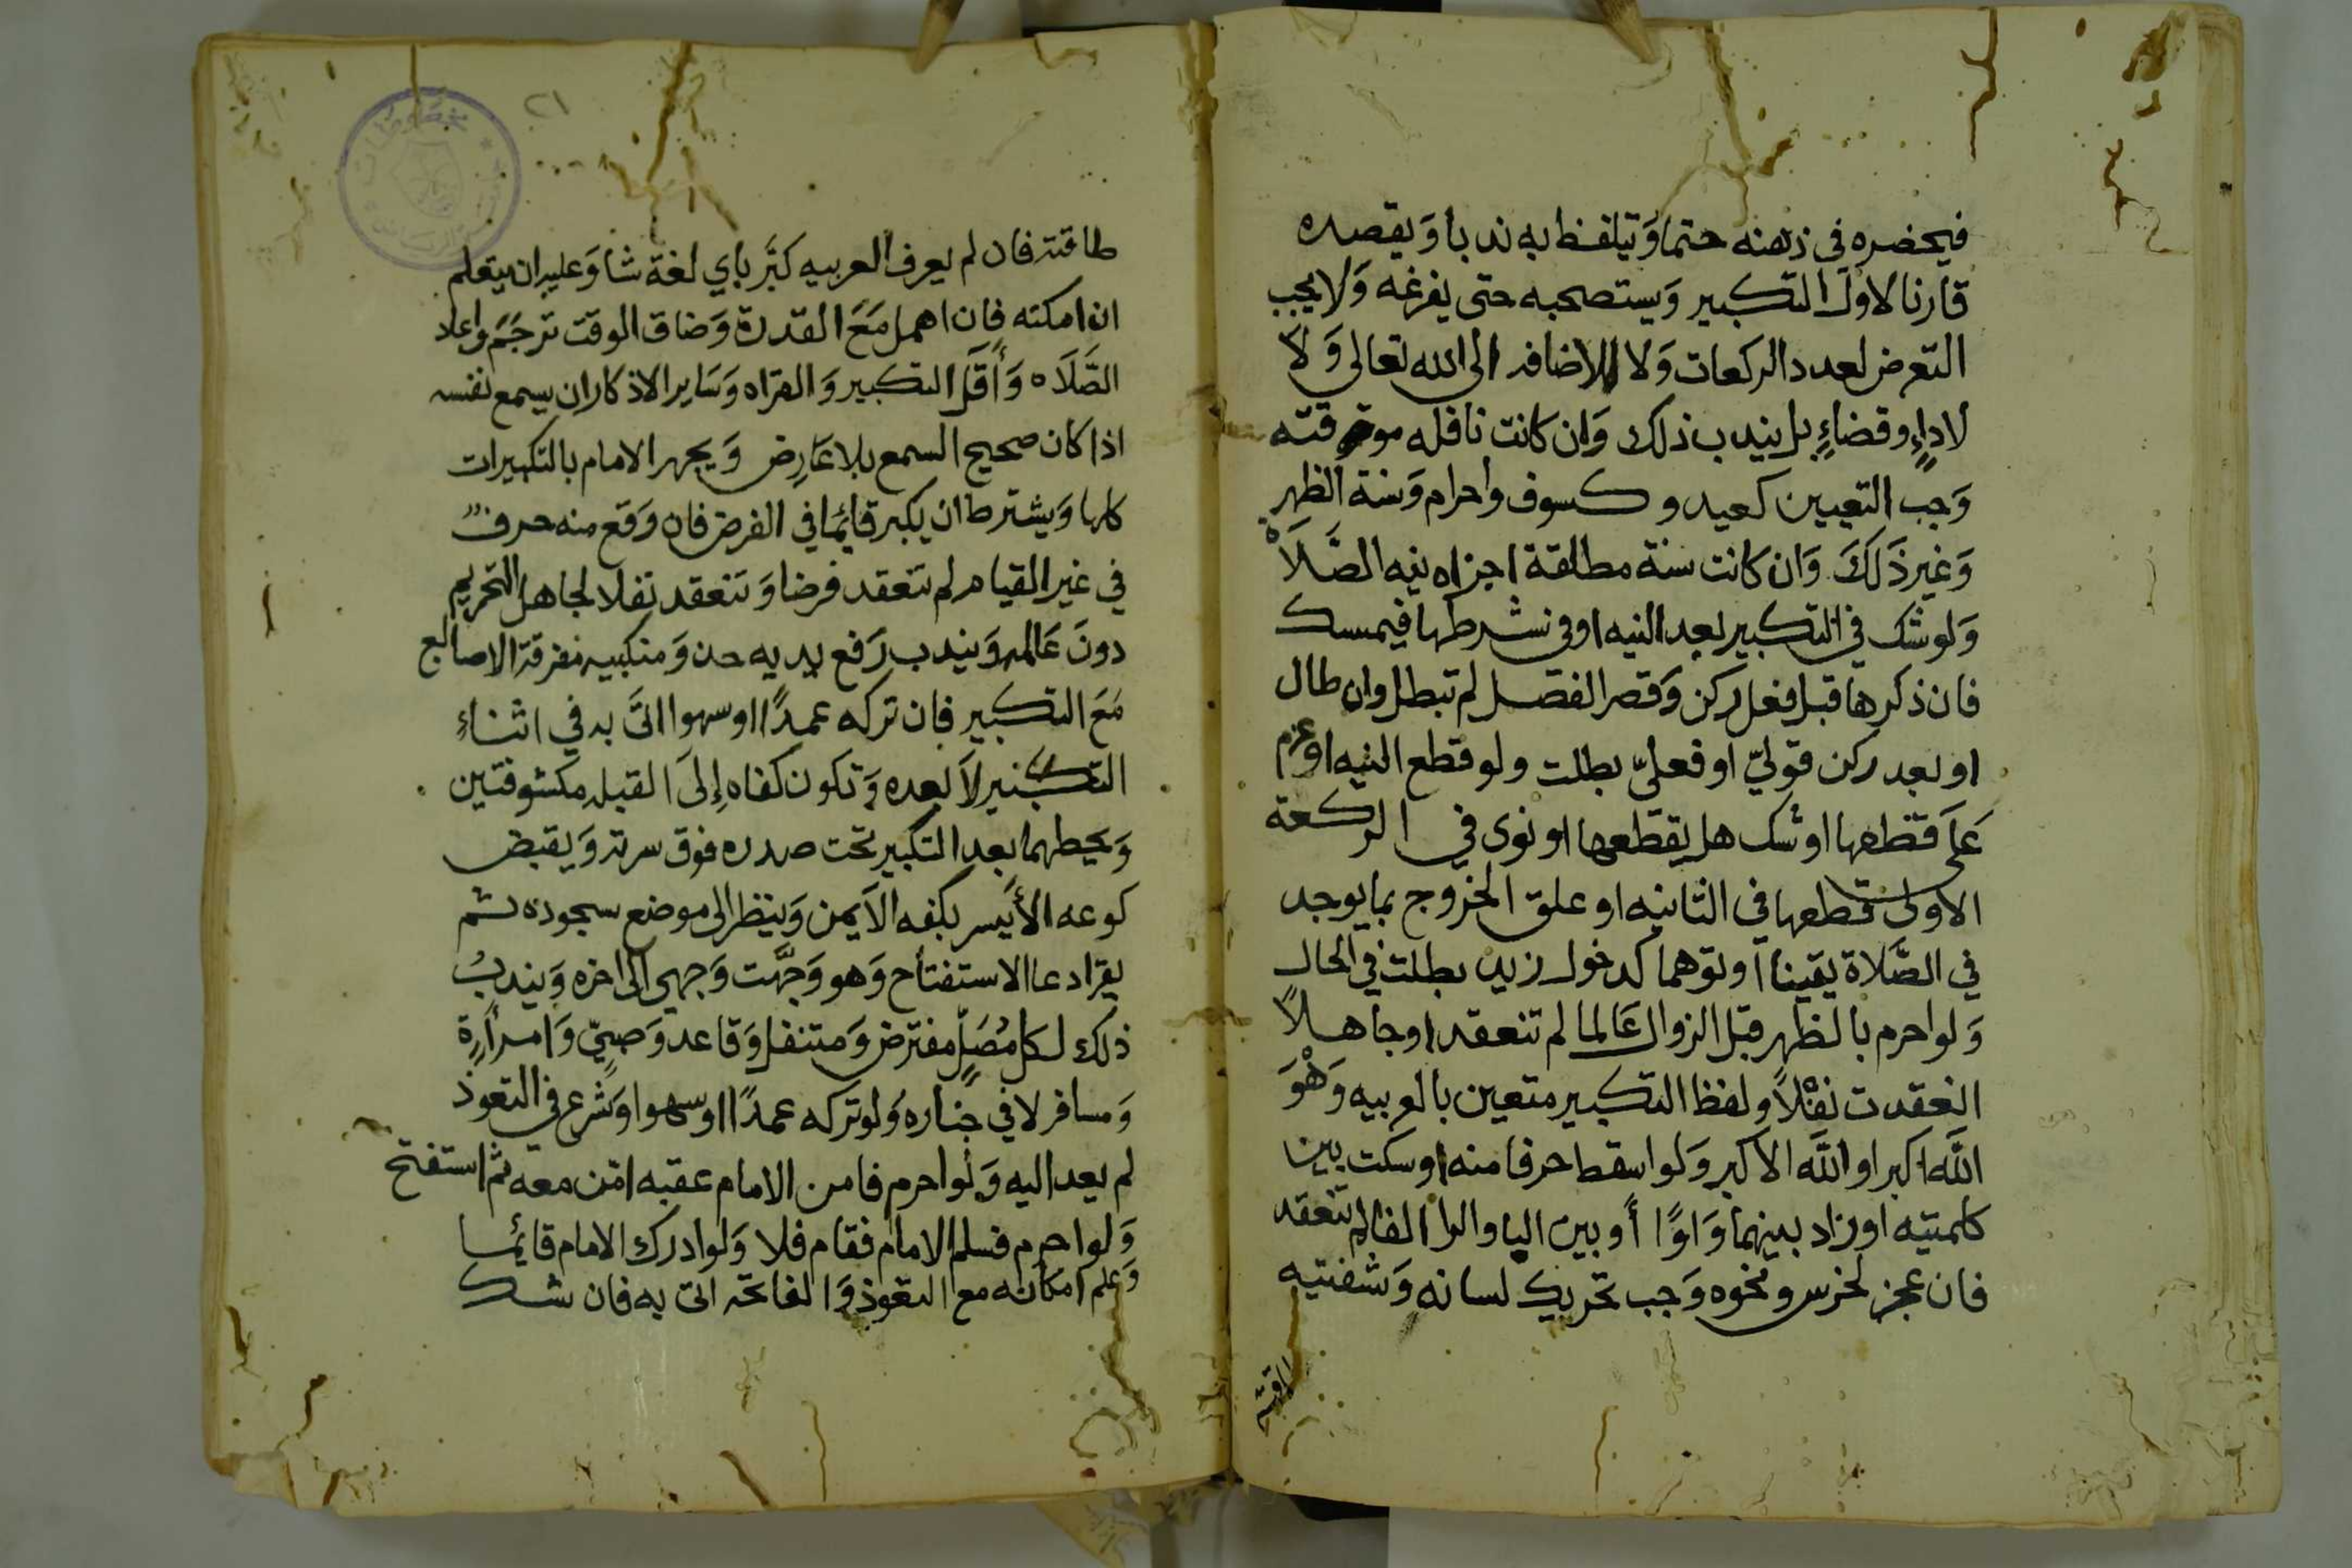 فيحضره في ذهنه حتما وَيتلفظ به ندبا وَيقصده
قارنا لاول التكبير وَيستصحبه حتى يفرغه وَلا يجب
التعرض لعدد الركعات وَلا للاضافه الى الله تعالى وَلا
لاداءٍ وقضاءٍ بل يندب ذلك وَان كانت نافله موقته
وَجب التعيين كعيد وكسوف واحرام وَسنة الظهر
وَغير ذَلكَ وَان كانت سنة مطلقة اجزاه نيه الصَّلَاه
وَلو شك في التكبير بعد النيه او في شرطها فيمسك
فان ذكرها قبل فعل ركن وَقصر الفصل لم تبطل وان طال
او بعد ركن قوليّ او فعليّ بطلت ولو قطع النيه او عزم
عَلَى قطعها او شك هل يقطعها او نوى في الركعة
الاولى قطعها في الثانيه او علق الخروج بما يوجد
في الصَّلاة يقينا او توهما كدخول زيد بطلت في الحال
وَلو احرم بالظهر قبل الزوال عَالما لم تنعقد او جاهلاً
انعقدت نفْلاً ولفظ التكبير متعين بالعربيه وَهْوَ
اللَّه اكبر او اللَّه الاكبر وَلو اسقط حرفا منه او سكت بين
كلمتيه او زاد بينهما وَاوًا أَو بين البا والرا الفا لم تنعقد
فان عجز لخرس ونحوه وَجب تحريك لسانه وَشفتيه
طاقته
٢١
طاقته فان لم يعرف العربيه كبَّر باي لغة شا وَعليه ان يتعلم
ان امكنه فان اهمل مَعَ القدرة وَضاق الوقت ترجَمَ واعاد
الصَّلَاه وَأَقَل التكبير وَالقراه وَسَاير الاذكار ان يسمع نفسه
اذا كان صحيح السمع بلا عَارِض وَيجهر الامام بالتكبيرات
كلها وَيشترط ان يكبر قايمًا في الفرض فان وَقع منه حرفٌ
في غير القيام لم تنعقد فرضا وَتنعقد نفلا لجاهل التحريم
دونَ عَالمه وَيندب رَفع يديه حذوَ منكبيه مفرقة الاصابع
مَعَ التكبير فان تركه عمدًا او سهوا اتىَ به في اثناءِ
التكبير لا بعده وَتكون كفاه إِلىَ القبله مكشوفتين
وَيحطهما بعد التكبير تحت صدره فوق سرته وَيقبض
كوعه الأَيسر بكفه الاَيمن وَينظر الى موضع سجوده ثم
يقرا دعا الاستفتاح وَهو وَجَّهت وَجهي الى اخره وَيندبُ
ذلك لكل مُصَلٍّ مفترض وَمتنفل وَقاعد وَصبيّ وَامرأَةٍ
وَمسافر لا في جنازه وَلو تركه عمدًا او سهوا وَشرع في التعوذ
لم يعد اليه وَلو احرم فامن الامام عقبه امّن معه ثم استفتح
وَلو احرم فسلم الامام فقام فلا وَلو ادرك الامام قائما
وَعلم امكانه مع التعوذ وَالفاتحه اتى به فان شك